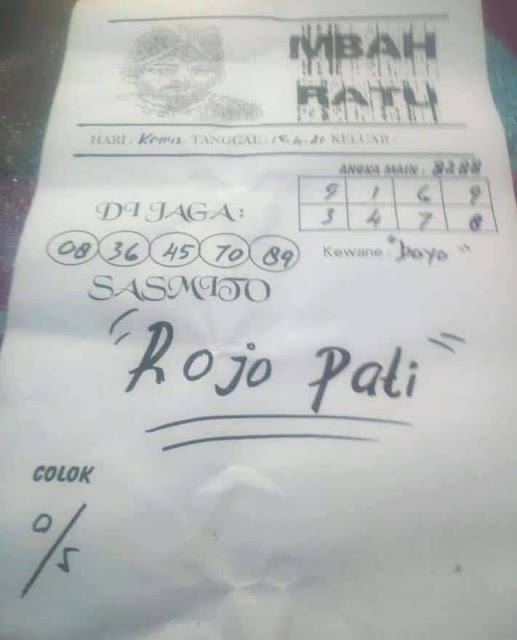 MBAH
RATU
HARI : Kemis TANGGAL : KELUAR :
ANGKA MAIN :
9 1 6 9
3 4 7 8
DI JAGA :
08 36 45 70 89
Kewane : "Boyo"
SASMITO
"Rojo Pati"
COLOK
0/5